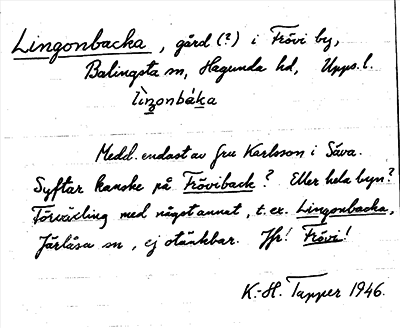 Lingonbacka, gård (?) i Frövi by,
Balingsta sn, Hagunda hd, Upps. l.
lìŋonbák̀a
Medd. endast av fru Karlsson i Säva.
Syftar kanske på Fröviback? Eller hela byn?
Förväxling med något annat, t. ex. Lingonbacka,
Järlåsa sn, ej otänkbar. Jfr! Frövi!
K.-H. Tapper 1946.